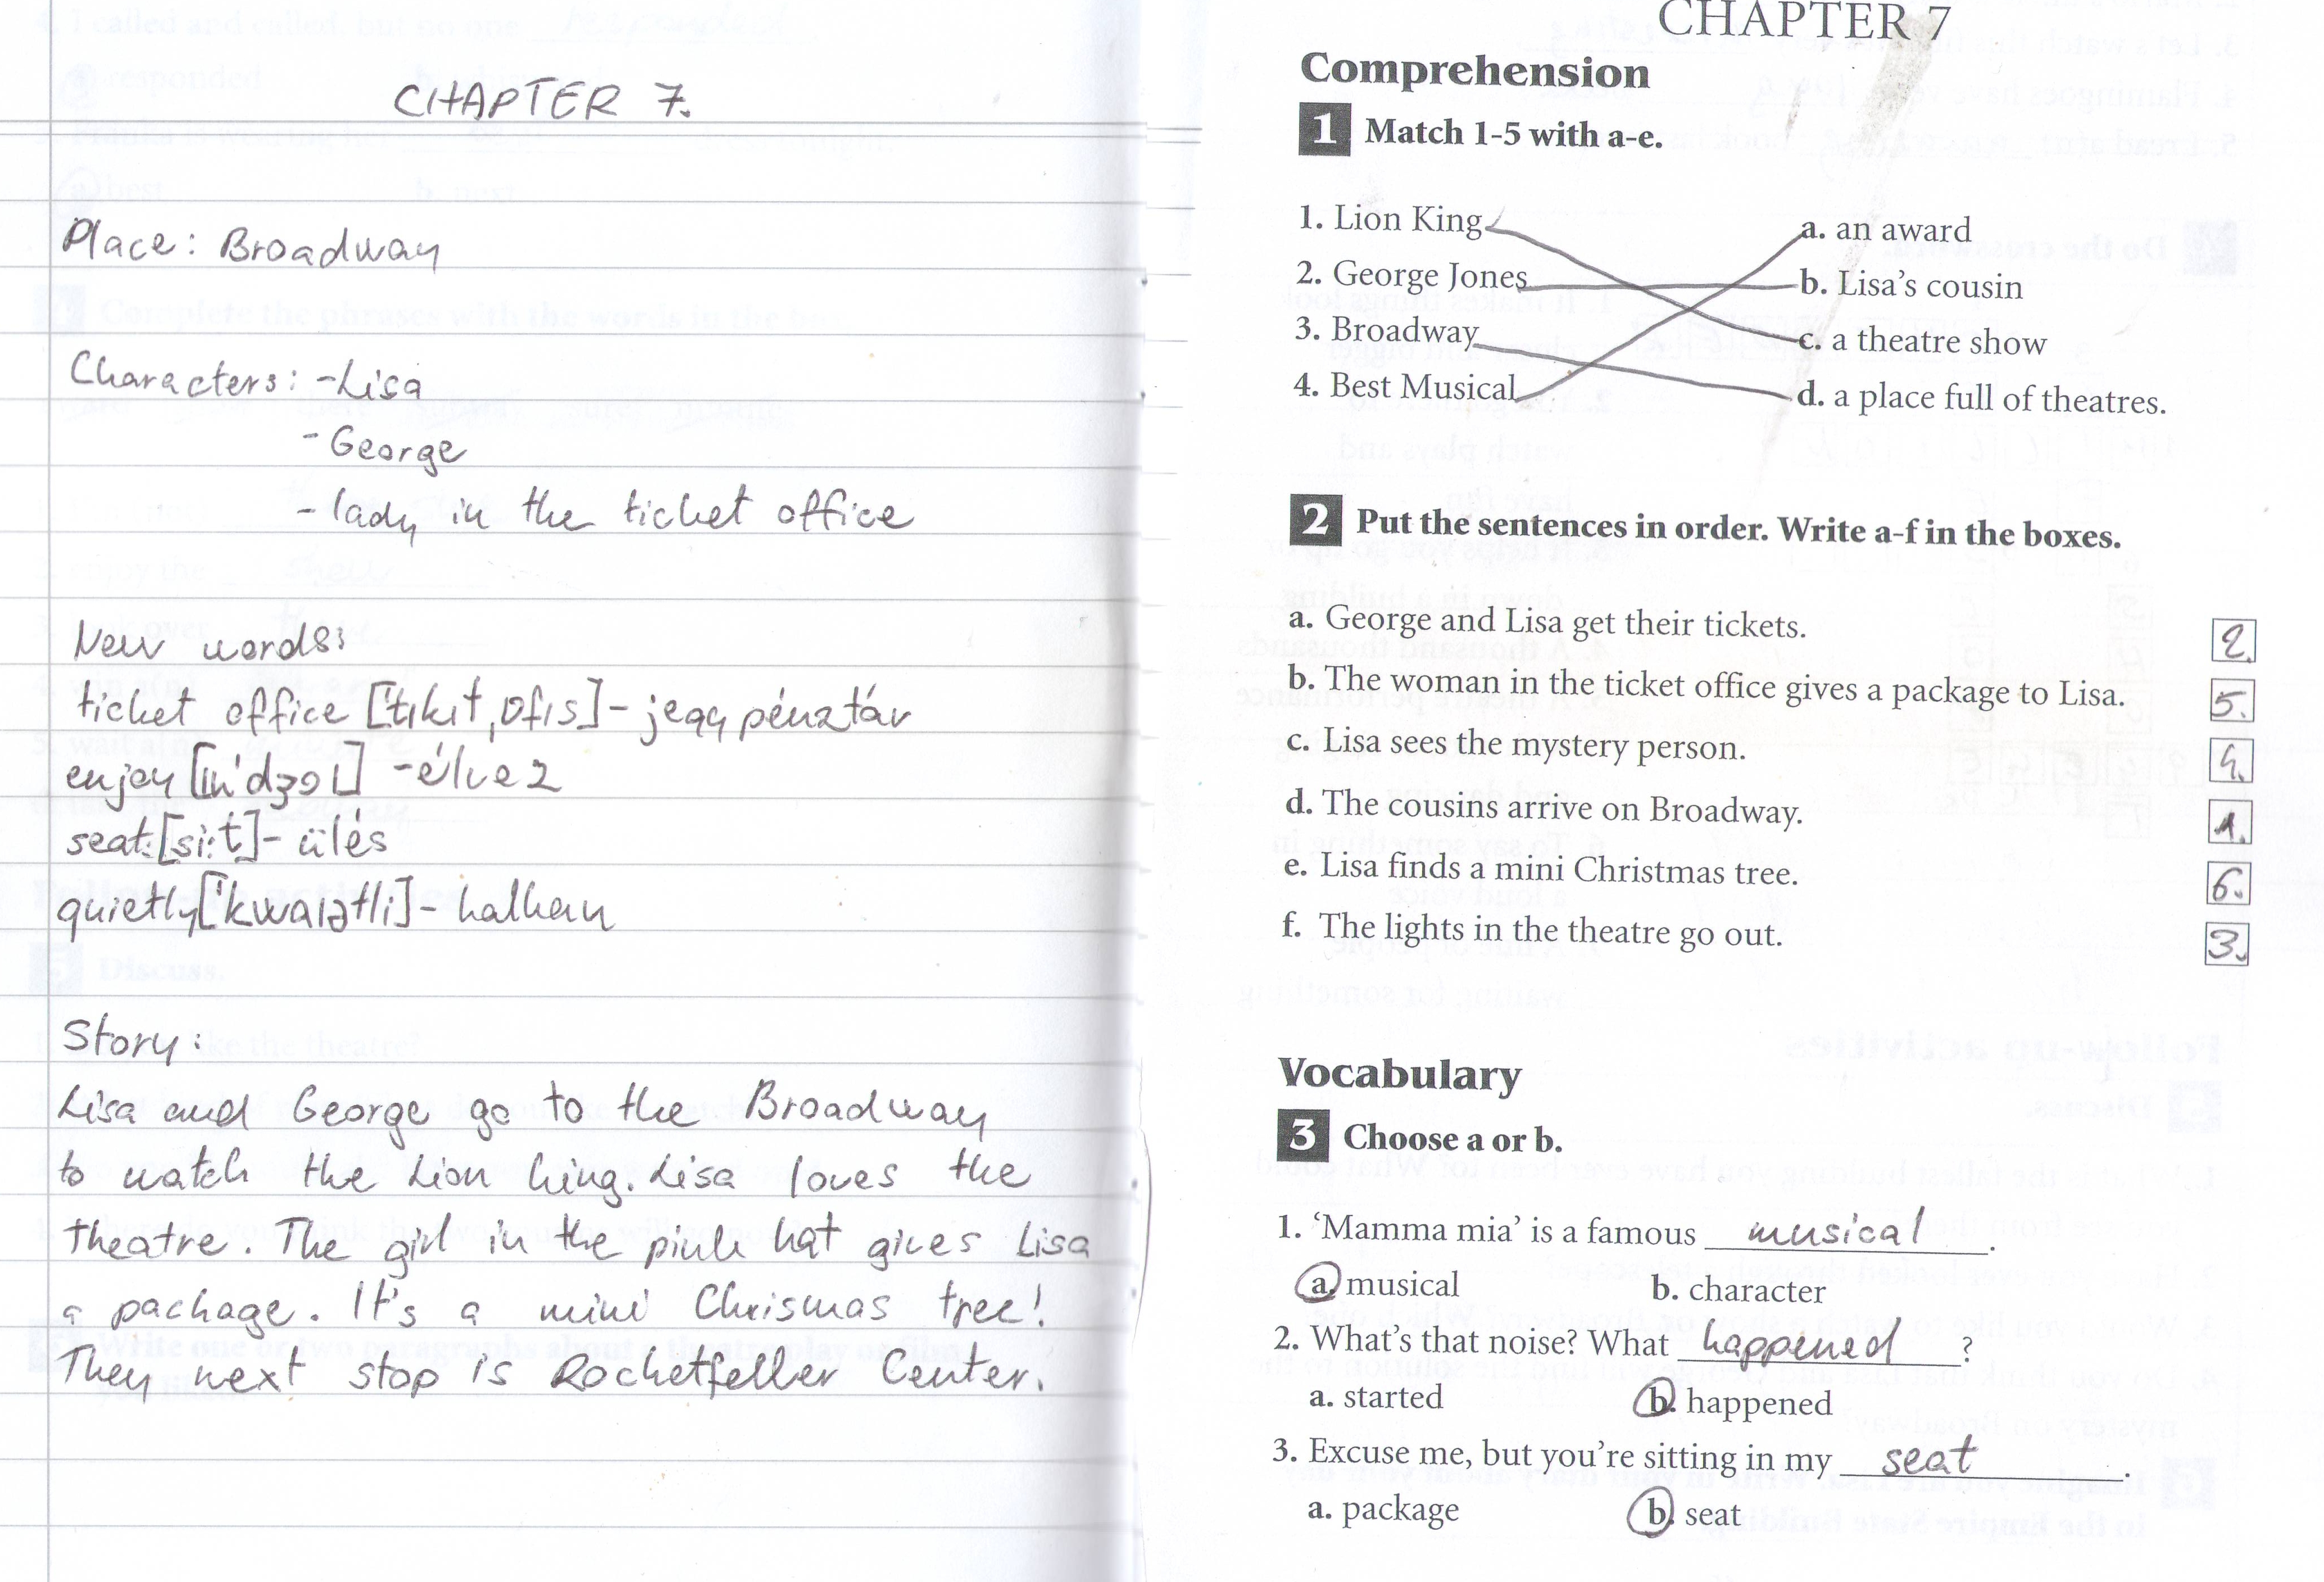 CHAPTER 7.
Place: Broadway
Characters: -Lisa
- George
- lady in the ticket office
New words:
ticket office [tıkıt,ɒfıs] - jegy pénztár
enjoy [ın'dʒɔı] - élvez
seat:[si:t] - ülés
quietly['kwaıətli] - halkan
Story:
Lisa and George go to the Broadway
to watch the Lion King. Lisa loves the
theatre. The girl in the pink hat gives Lisa
a package. It's a mini Chrismas tree!
They next stop is Rocketfeller Center.
CHAPTER 7
Comprehension
1 Match 1-5 with a-e.
1. Lion King a. an award
2. George Jones b. Lisa's cousin
3. Broadway c. a theatre show
4. Best Musical d. a place full of theatres.
2 Put the sentences in order. Write a-f in the boxes.
a. George and Lisa get their tickets. 2.
b. The woman in the ticket office gives a package to Lisa. 5.
c. Lisa sees the mystery person. 4.
d. The cousins arrive on Broadway. 1.
e. Lisa finds a mini Christmas tree. 6.
f. The lights in the theatre go out. 3.
Vocabulary
3 Choose a or b.
1. 'Mamma mia' is a famous musical.
a. musical b. character
2. What's that noise? What happened?
a. started b. happened
3. Excuse me, but you're sitting in my seat.
a. package b. seat